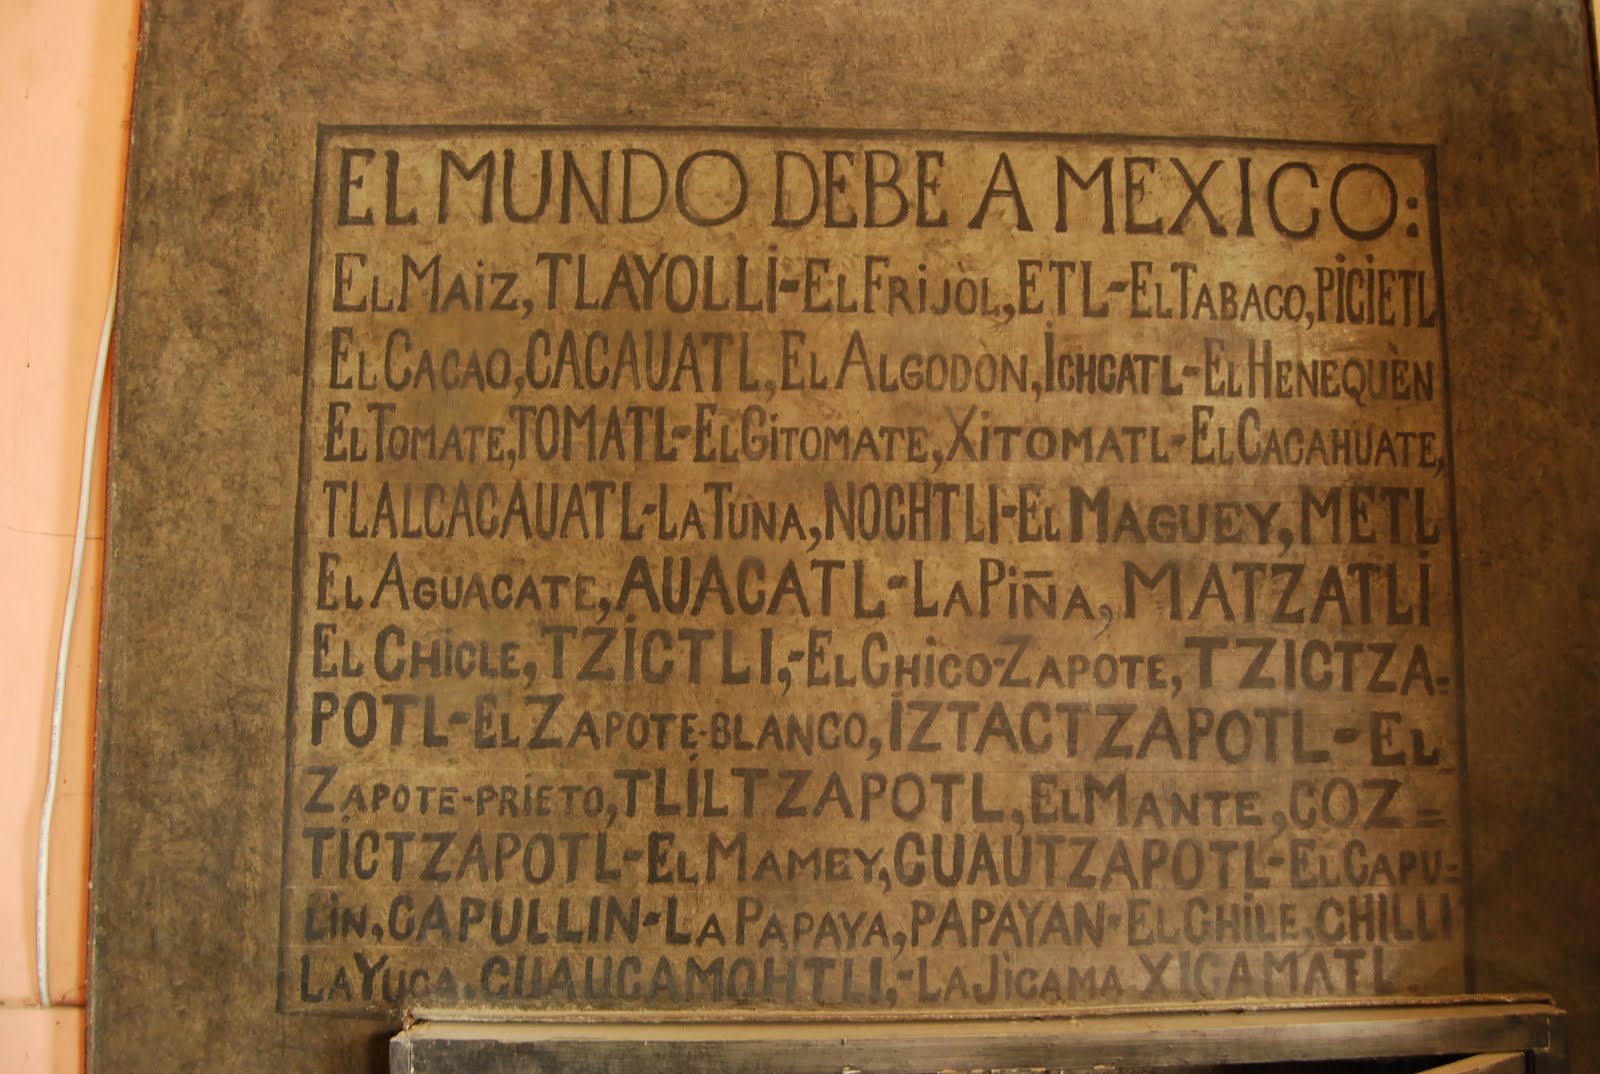 EL MUNDO DEBE A MEXICO:
EL MAIZ, TLAYOLLI-EL FRIJÒL, ETL-EL TABACO, PICIETL
EL CACAO, CACAUATL, EL ALGODÒN, ICHCATL-EL HENEQUÈN
EL TOMATE, TOMATL-EL GITOMATE, XITOMATL-EL CACAHUATE,
TLALCACAUATL-LA TUNA, NOCHTLI-EL MAGUEY, METL
EL AGUACATE, AUACATL-LA PIÑA, MATZATLI
EL CHICLE, TZICTLI,-EL CHICO-ZAPOTE, TZICTZA-
POTL-EL ZAPOTE-BLANCO, IZTACTZAPOTL-EL
ZAPOTE-PRIETO, TLILTZAPOTL, EL MANTE, COZ=
TICTZAPOTL-EL MAMEY, CUAUTZAPOTL-EL CAPU=
LIN, CAPULLIN-LA PAPAYA, PAPAYAN-EL CHILE, CHILLI
LA YUCA, CUAUCAMOHTLI,-LA JÌCAMA XICAMATL.